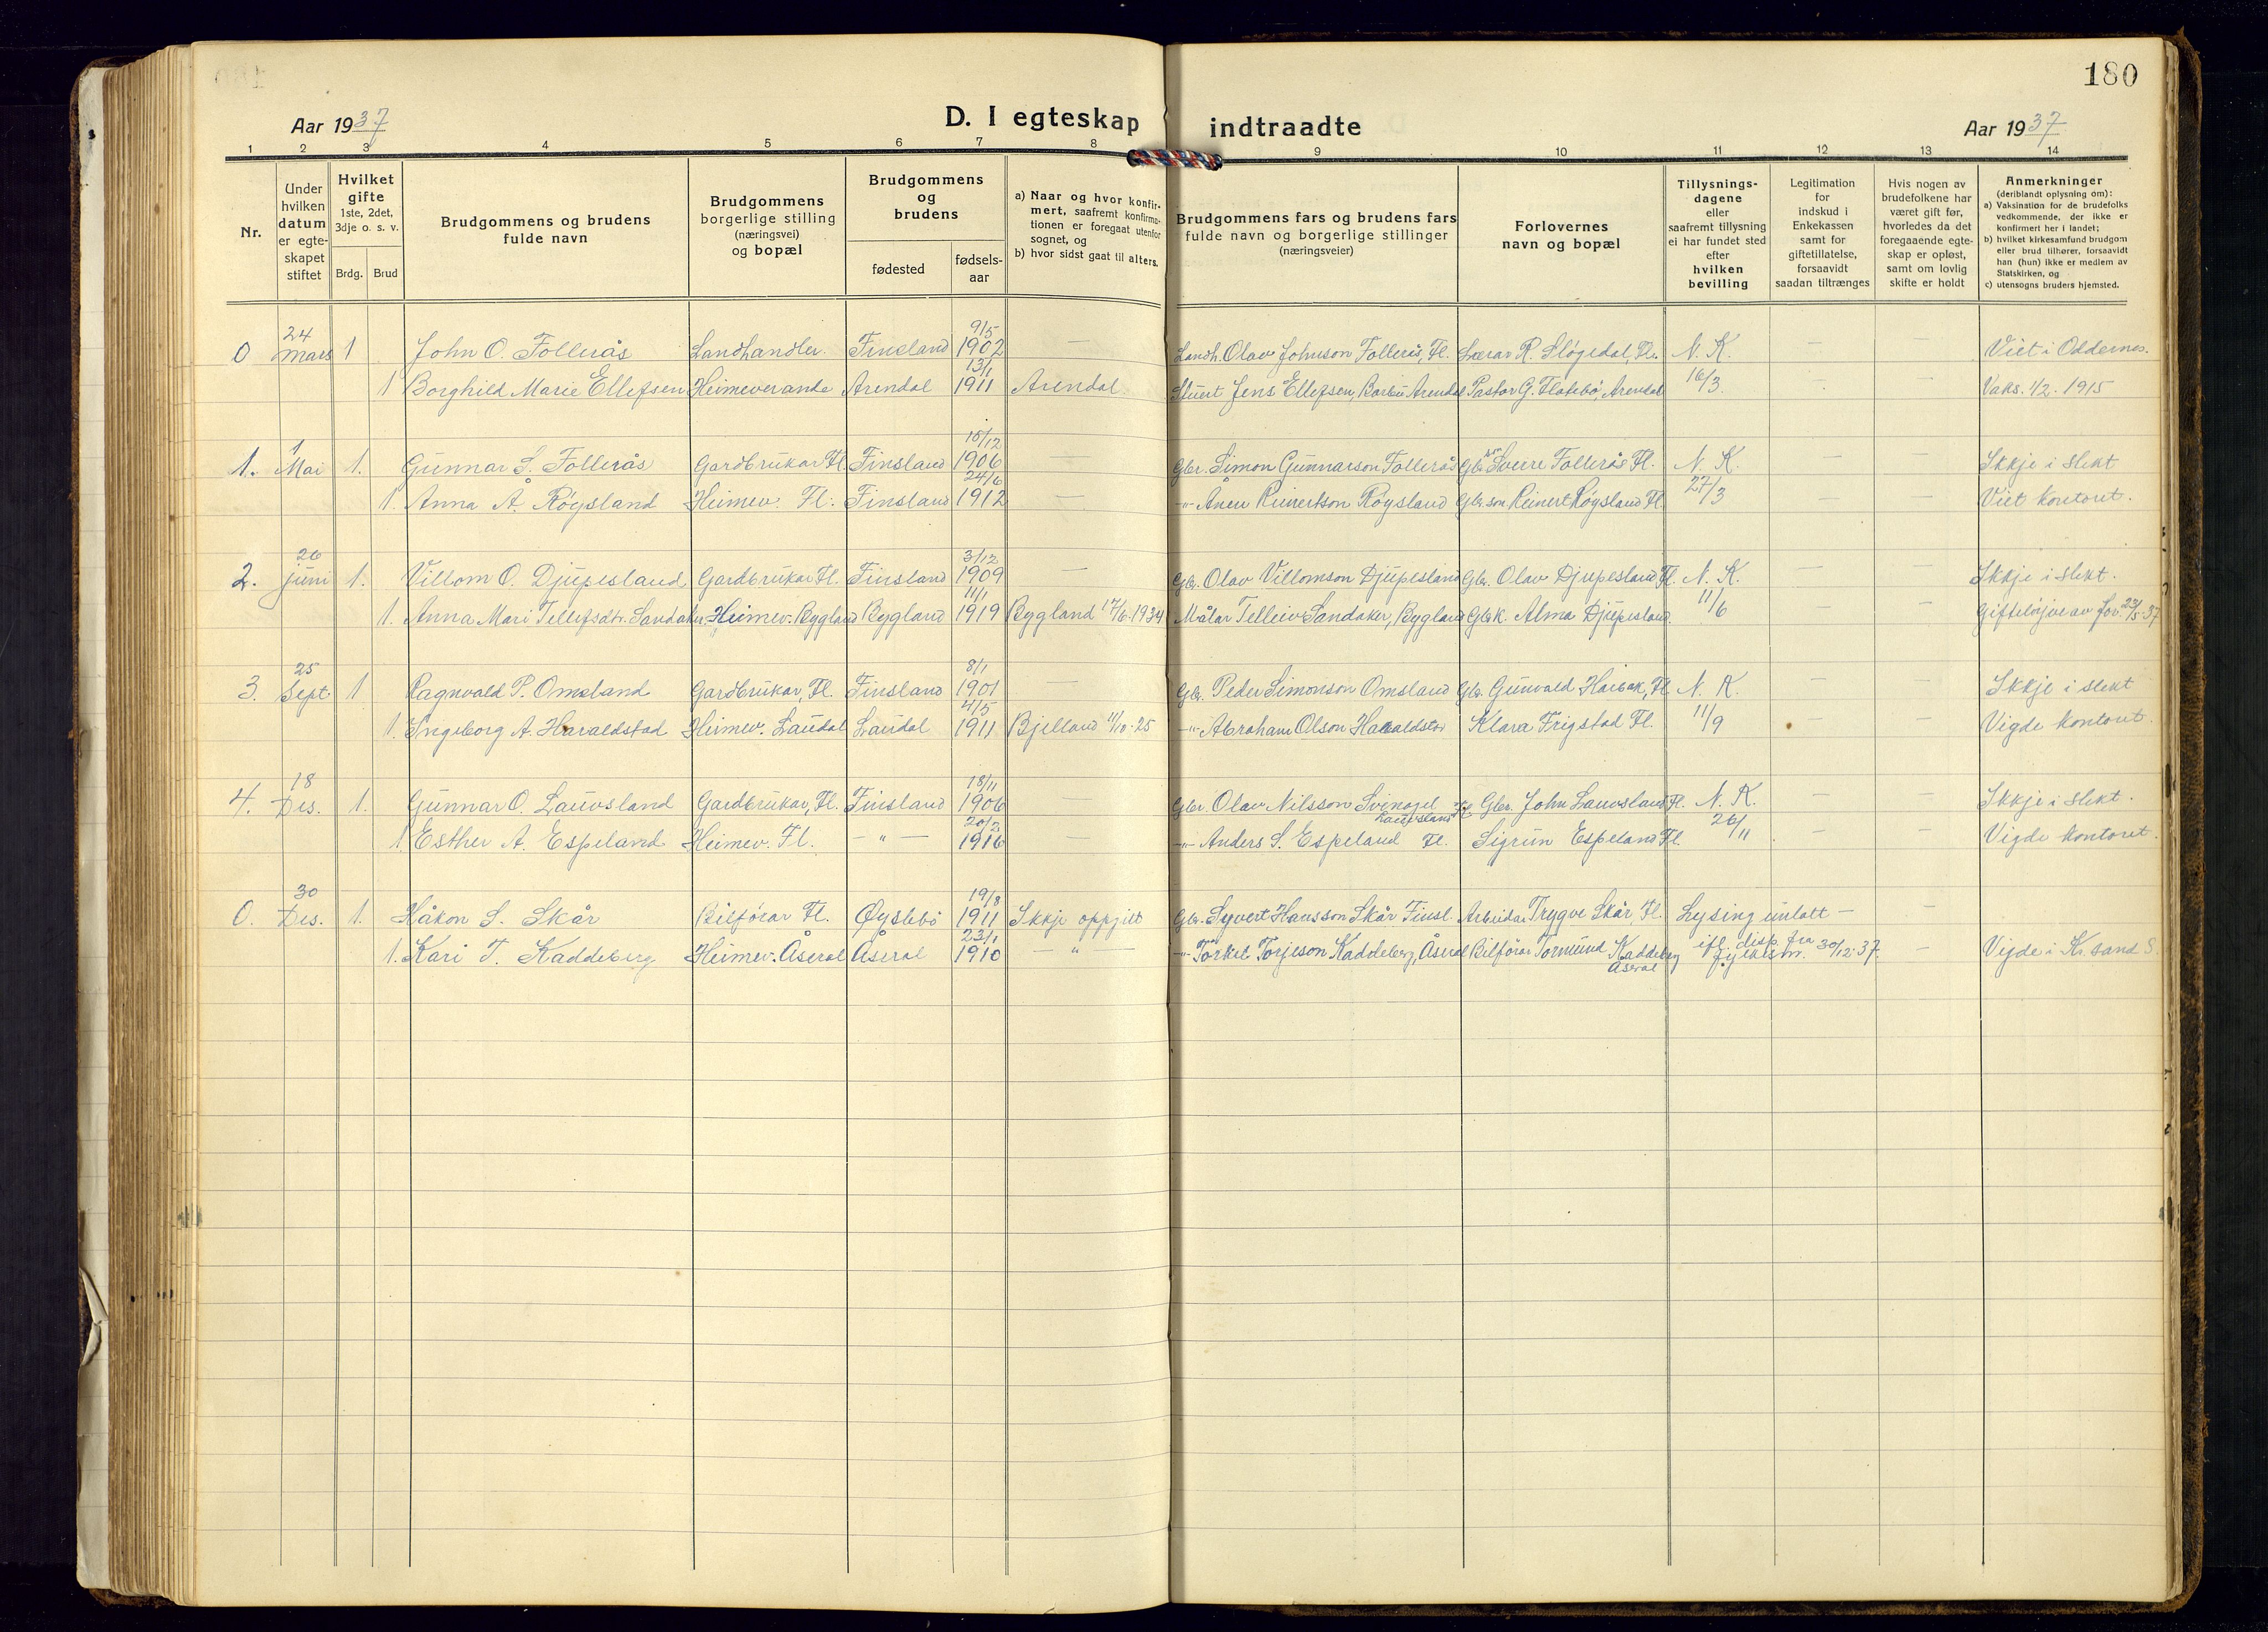 180
Aar 1937
D. I egteskap indtraadte
Aar 1937
1 2 3 4 5 6 7 8 9 10 11 12 13 14
Nr.
Under hvilken datum er egteskapet stiftet
Hvilket gifte 1ste, 2det, 3dje o. s. v.
Brdg. Brud
Brudgommens og brudens fulde navn
Brudgommens borgerlige stilling (næringsvei) og bopæl
Brudgommens og brudens
fødested
fødsels-aar
a) Naar og hvor konfirmert, saafremt konfirmationen er foregaat utenfor sognet, og
b) hvor sidst gaat til alters.
Brudgommens fars og brudens fars fulde navn og borgerlige stillinger (næringsveier)
Forlovernes navn og bopæl
Tillysningsdagene eller saafremt tillysning ei har fundet sted efter hvilken bevilling
Legitimation for indskud i Enkekassen samt for giftetillatelse, forsaavidt saadan tiltrænges
Hvis nogen av brudefolkene har været gift før, hvorledes da det foregaaende egteskap er opløst, samt om lovlig skifte er holdt
Anmerkninger (deriblandt oplysning om):
a) Vaksination for de brudefolks vedkommende, der ikke er konfirmert her i landet;
b) hvilket kirkesamfund brudgom eller brud tilhører, forsaavidt han (hun) ikke er medlem av Statskirken, og
c) utensogns bruders hjemsted.
0 24 Mars 1 John O. Follerås Landhandler. Finsland 9/5 1902 — Landh. Olav Johnson Follerås, Fl. Lærar R. Sløgedal, Fl. N. K. — — Viet i Oddernes.
1 Borghild Marie Ellefsen Heimeverande Arendal 13/1 1911 Arendal. Stuert Jens Ellefsen, Barbu Arendal Pastor G. Flatebö, Arendal 16/3 — — Vaks. 1/2. 1915
1. 1 Mai 1. Gunnar S. Follerås Gardbrukar Fl. Finsland 1906 — Gbr. Simon Gunnarson Follerås Sverre Follerås Fl. N. K. — — Ikkje i slekt
1. Anna Å. Röysland Heimev. Fl. Finsland 24/6 1912 — -"- Ånen Reinertson Röysland Gbr.son Reinert Röysland Fl. 27/3 — — Viet kontoret.
2. 26 juni 1. Villom O. Djupesland Gardbrukar Fl. Finsland 3/12 1909 — Gbr. Olav Villomson Djupesland Gbr. Olav Djupesland Fl. N. K. — — Ikkje i slekt.
1. Anna Mari Tellefsdtr. Sandaker Heimev. Bygland Bygland 11/1 1919 Bygland 17/6. 1934 Målar Telleiv Sandaker, Bygland Gbk. Alma Djupesland. 11/6 — — Giftelöyve av fov. 23/5. 37
3. 25 Sept. 1 Ragnvald P. Omsland Gardbrukar, Fl. Finsland 8/1 1901 — Gbr. Peder Simonson Omsland Gbr. Gunvald Haibak, Fl. N. K. — — Ikkje i slekt
1. Ingeborg A. Haraldstad Heimev. Laudal Laudal 4/5 1911 Bjelland 11/10. 25 -"- Abraham Olson Haraldstad Klara Frigstad Fl. 11/9 — — Vigde kontoret.
4. 18 Des. 1. Gunnar O. Lauvsland Gardbrukar, Fl. Finsland 18/11 1906 — Gbr. Olav Nilsson Lauvsland Fl. Gbr. John Lauvsland Fl. N. K. — — Ikkje i slekt.
1. Esther A. Espeland Heimev. Fl. — " — 20/2 1916 — -"- Anders S. Espeland Fl. Sigrun Espeland Fl. 26/11 — — Vigde kontoret.
0. 30 Des. 1. Håkon S. Skår Bilförar Fl. Öyslebö 19/8 1911 Ikkje oppgitt Gbr. Syvert Hansson Skår Finsl. Arbeidar Trygve Skår Fl. Lysing unlatt — —
1. Kari T. Kaddeberg Heimev. Åseral Åseral 23/1 1910 — " -"- Torkel Torjeson Kaddeberg, Åseral Bilförar Tormund Kaddeberg Åseral ifl. disp. fra fylkesm. 30/12. 37. — Vigde i Kr.sand S